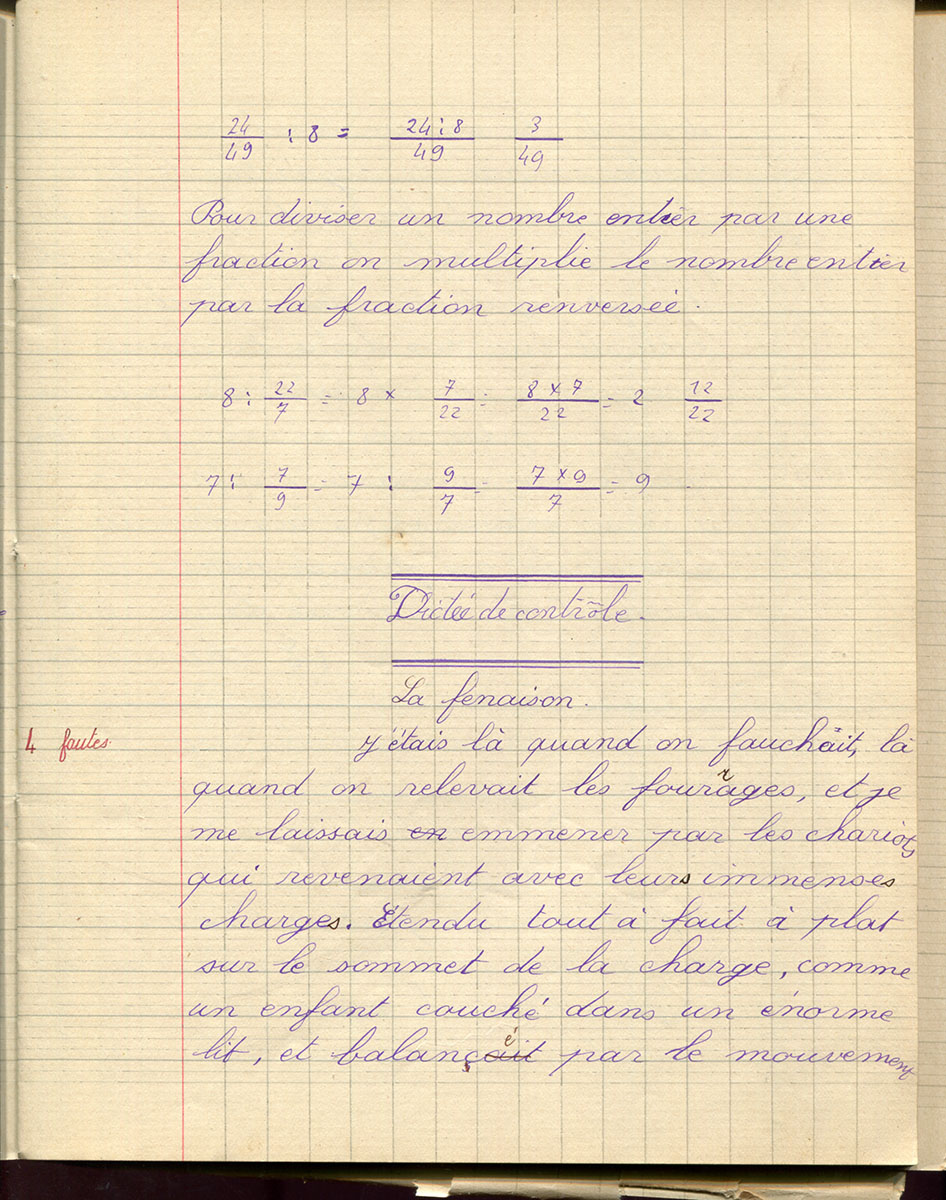 24/49 : 8 = 24:8/49 3/49
Pour diviser un nombre entier par une
fraction on multiplie le nombre entier
par la fraction renversée.
8 : 22/7 = 8 × 7/22 = 8 × 7/22 = 2 12/22
7 : 7/9 = 7 : 9/7 = 7 × 9/7 = 9
Dictée de contrôle.
La fenaison.
4 fautes. J'étais là quand on fauchait, là
quand on relevait les fourrages, et je
me laissais en emmener par les chariots
qui revenaient avec leurs immenses
charges. Etendu tout à fait à plat
sur le sommet de la charge, comme
un enfant couché dans un énorme
lit, et balançait é par le mouvement